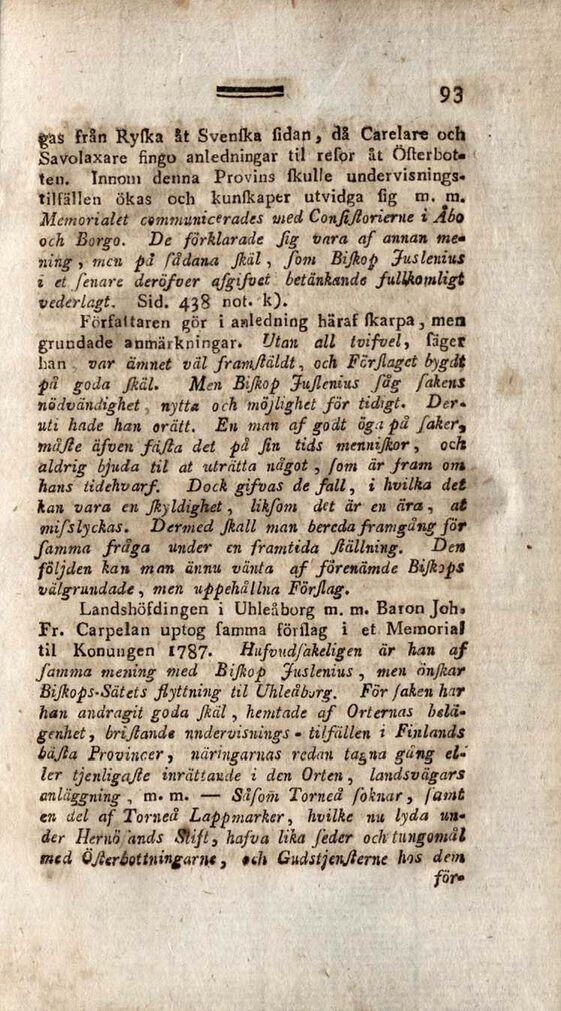 93
gas från Ryſka åt Svenſka ſidan, då Carelare och
Savolaxare fingo anledningar til reſor åt Öſterbot-
ten. Innom denna Provins ſkulle undervisnings-
tilfällen ökas och kunſkaper utvidga ſig m. m.
Memorialet communicerades med Conſiſtorierne i Åbo
och Borgo. De förklarade ſig vara af annan me-
ning, men på ſådana ſkäl, ſom Biſkop Juslenius
i et ſenare deröfver afgifvet betänkande fullkomligt
vederlagt. Sid. 438 not. k).
Författaren gör i anledning häraf ſkarpa, men
grundade anmärkningar. Utan all tvifvel, ſäger
han, var ämnet väl framſtäldt, och Förſlaget bygdt
på goda ſkäl. Men Biſkop Juſlenius ſåg ſakens
nödvändighet, nytta och möjlighet för tidigt. Der-
uti hade han orätt. En man af godt öga på ſaker,
måſte äfven fäſta det på ſin tids menniſkor, och
aldrig bjuda til at uträtta något, ſom är fram om
hans tidehvarf. Dock gifvas de fall, i hvilka det
kan vara en ſkyldighet, likſom det är en ära, at
miſslyckas. Dermed ſkall man bereda framgång för
ſamma fråga under en framtida ſtällning. Den
följden kan man ännu vänta af förenämde Biſkops
välgrundade, men uppehållna Förſlag.
Landshöfdingen i Uhleåborg m. m. Baron Joh.
Fr. Carpelan uptog ſamma förſlag i et Memorial
til Konungen 1787. Hufvudſakeligen är han af
ſamma mening med Biſkop Juslenius, men önſkar
Biſkops-Sätets flyttning til Uhleåborg. För ſaken har
han andragit goda ſkäl, hemtade af Orternas belä-
genhet, briſtande nndervisnings-tilfällen i Finlands
bäſta Provincer, näringarnas redan tagna gång el-
ler tjenligaſte inrättande i den Orten, landsvägars
anläggning, m. m. — Såſom Torneå ſoknar, ſamt
en del af Torneå Lappmarker, hvilke nu lyda un-
der Hernöſands Stift, hafva lika ſeder och tungomål
med Öſterbottningarne, och Gudstjenſterne hos dem
för-